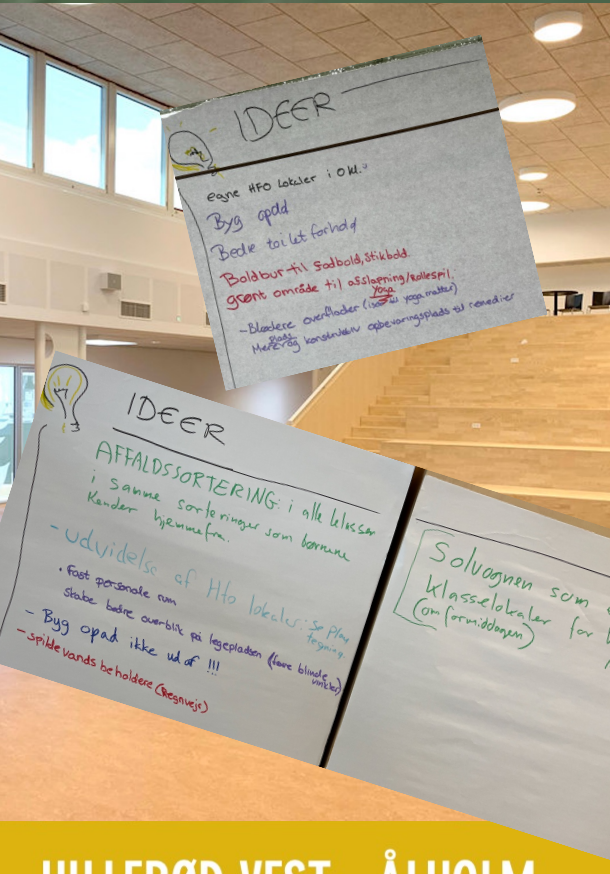 IDEER
egne HFO lokaler i 0 kl.
Byg opad
Bedre toilet forhold
Boldbur til fodbold, stikbold
grønt område til afslapning/rollespil.
yoga
-Blødere overflader (især til yoga matter)
plads
Mere og konstruktiv opbevaringsplads til remedier
IDEER
AFFALDSSORTERING i alle klasser
i samme sorteringer som børnene
kender hjemmefra.
- udvidelse af Hfo lokaler: se plan
tegning.
• Fast personale rum
Skabe bedre overblik på legepladsen (færre blinde
vinkler)
- Byg opad ikke ud af !!!
- spildevands beholdere (Regnvejr)
Solvognen som
klasselokaler for
(om formiddagen)
HILLERØD VEST - ÅLHOLM